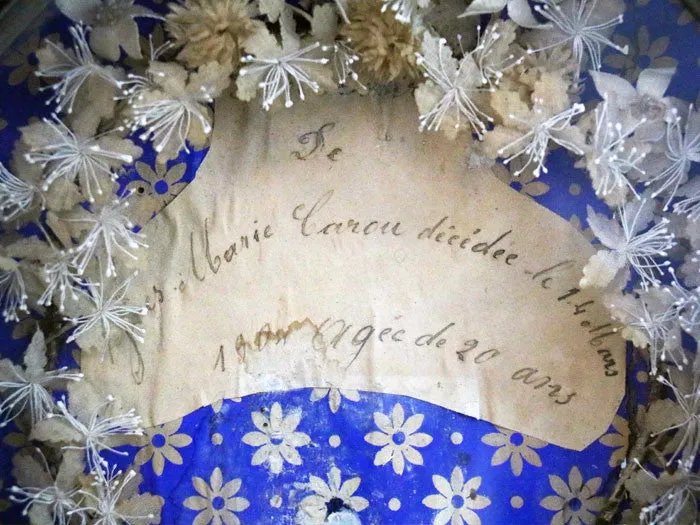 De
Marie Carou décédée le 14 Mars
Agée de 20 ans